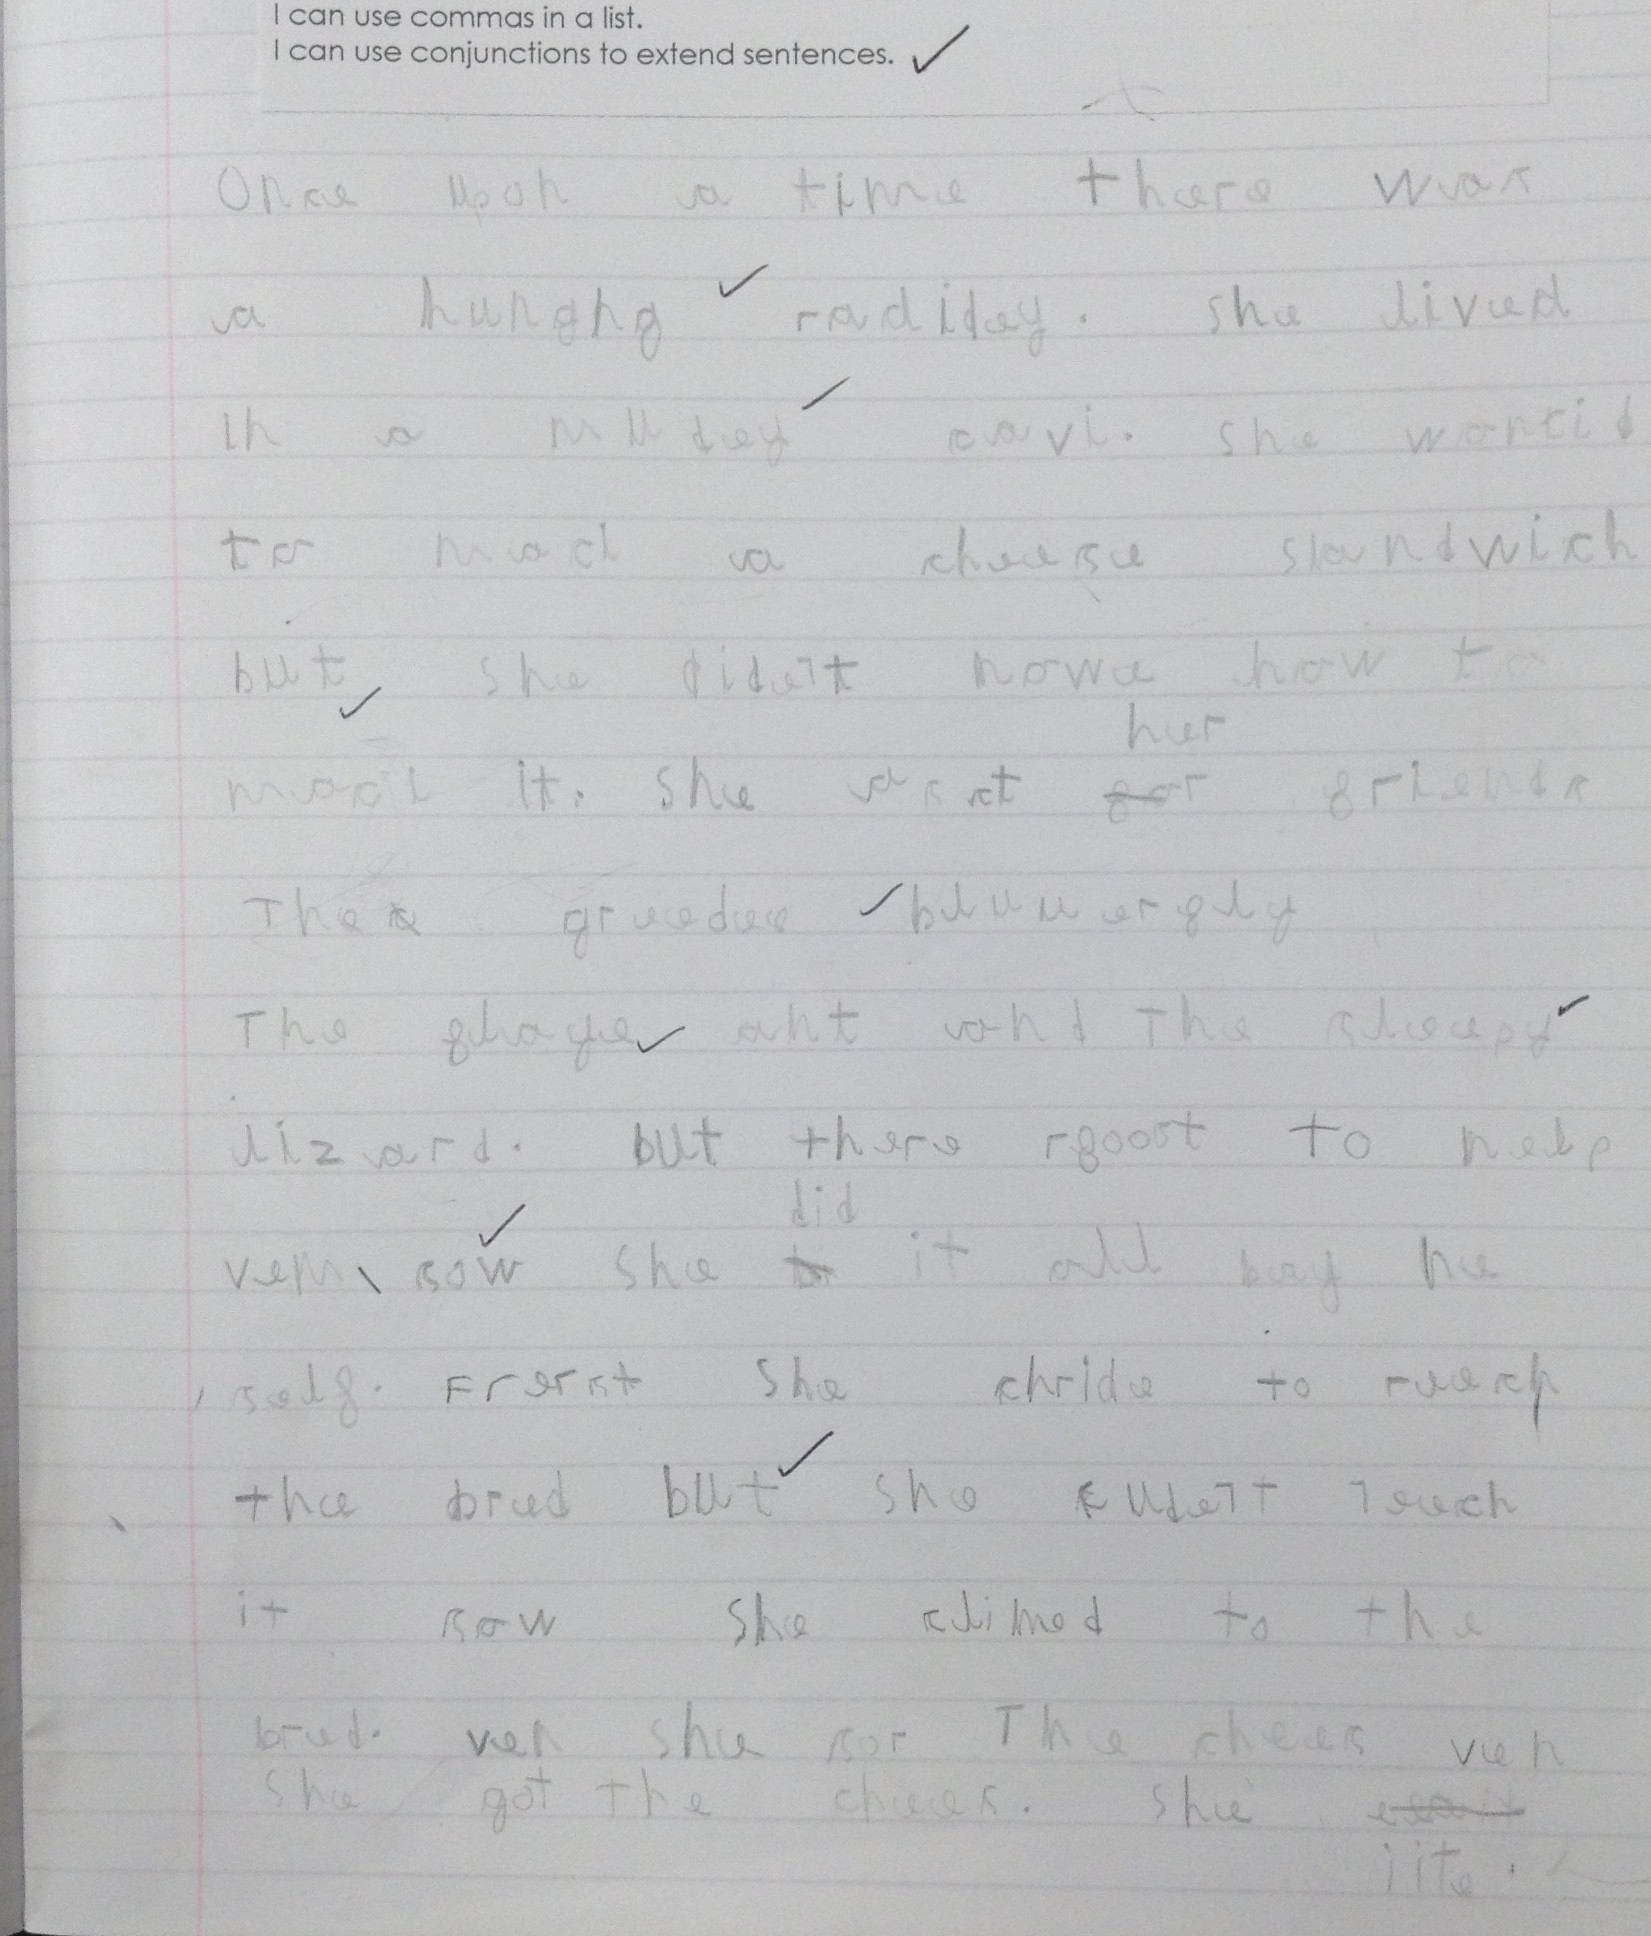 I can use commas in a list.
I can use conjunctions to extend sentences.
Once upon a time there was
a hunghg radidey. she lived
in a mudey cavi. she wontid
to mack a cheese sandwich
but she didett nowe how to
mack it. she asct her friends
The greedee
The flaye ant and The sleepy
lizard. but there to help
vem sow she did it all bay he
self. Frerst she chride to reech
the bred but she cudett reech
it sow she climed to the
bred. ven she sor The chees ven
she got the chees. she
iite.